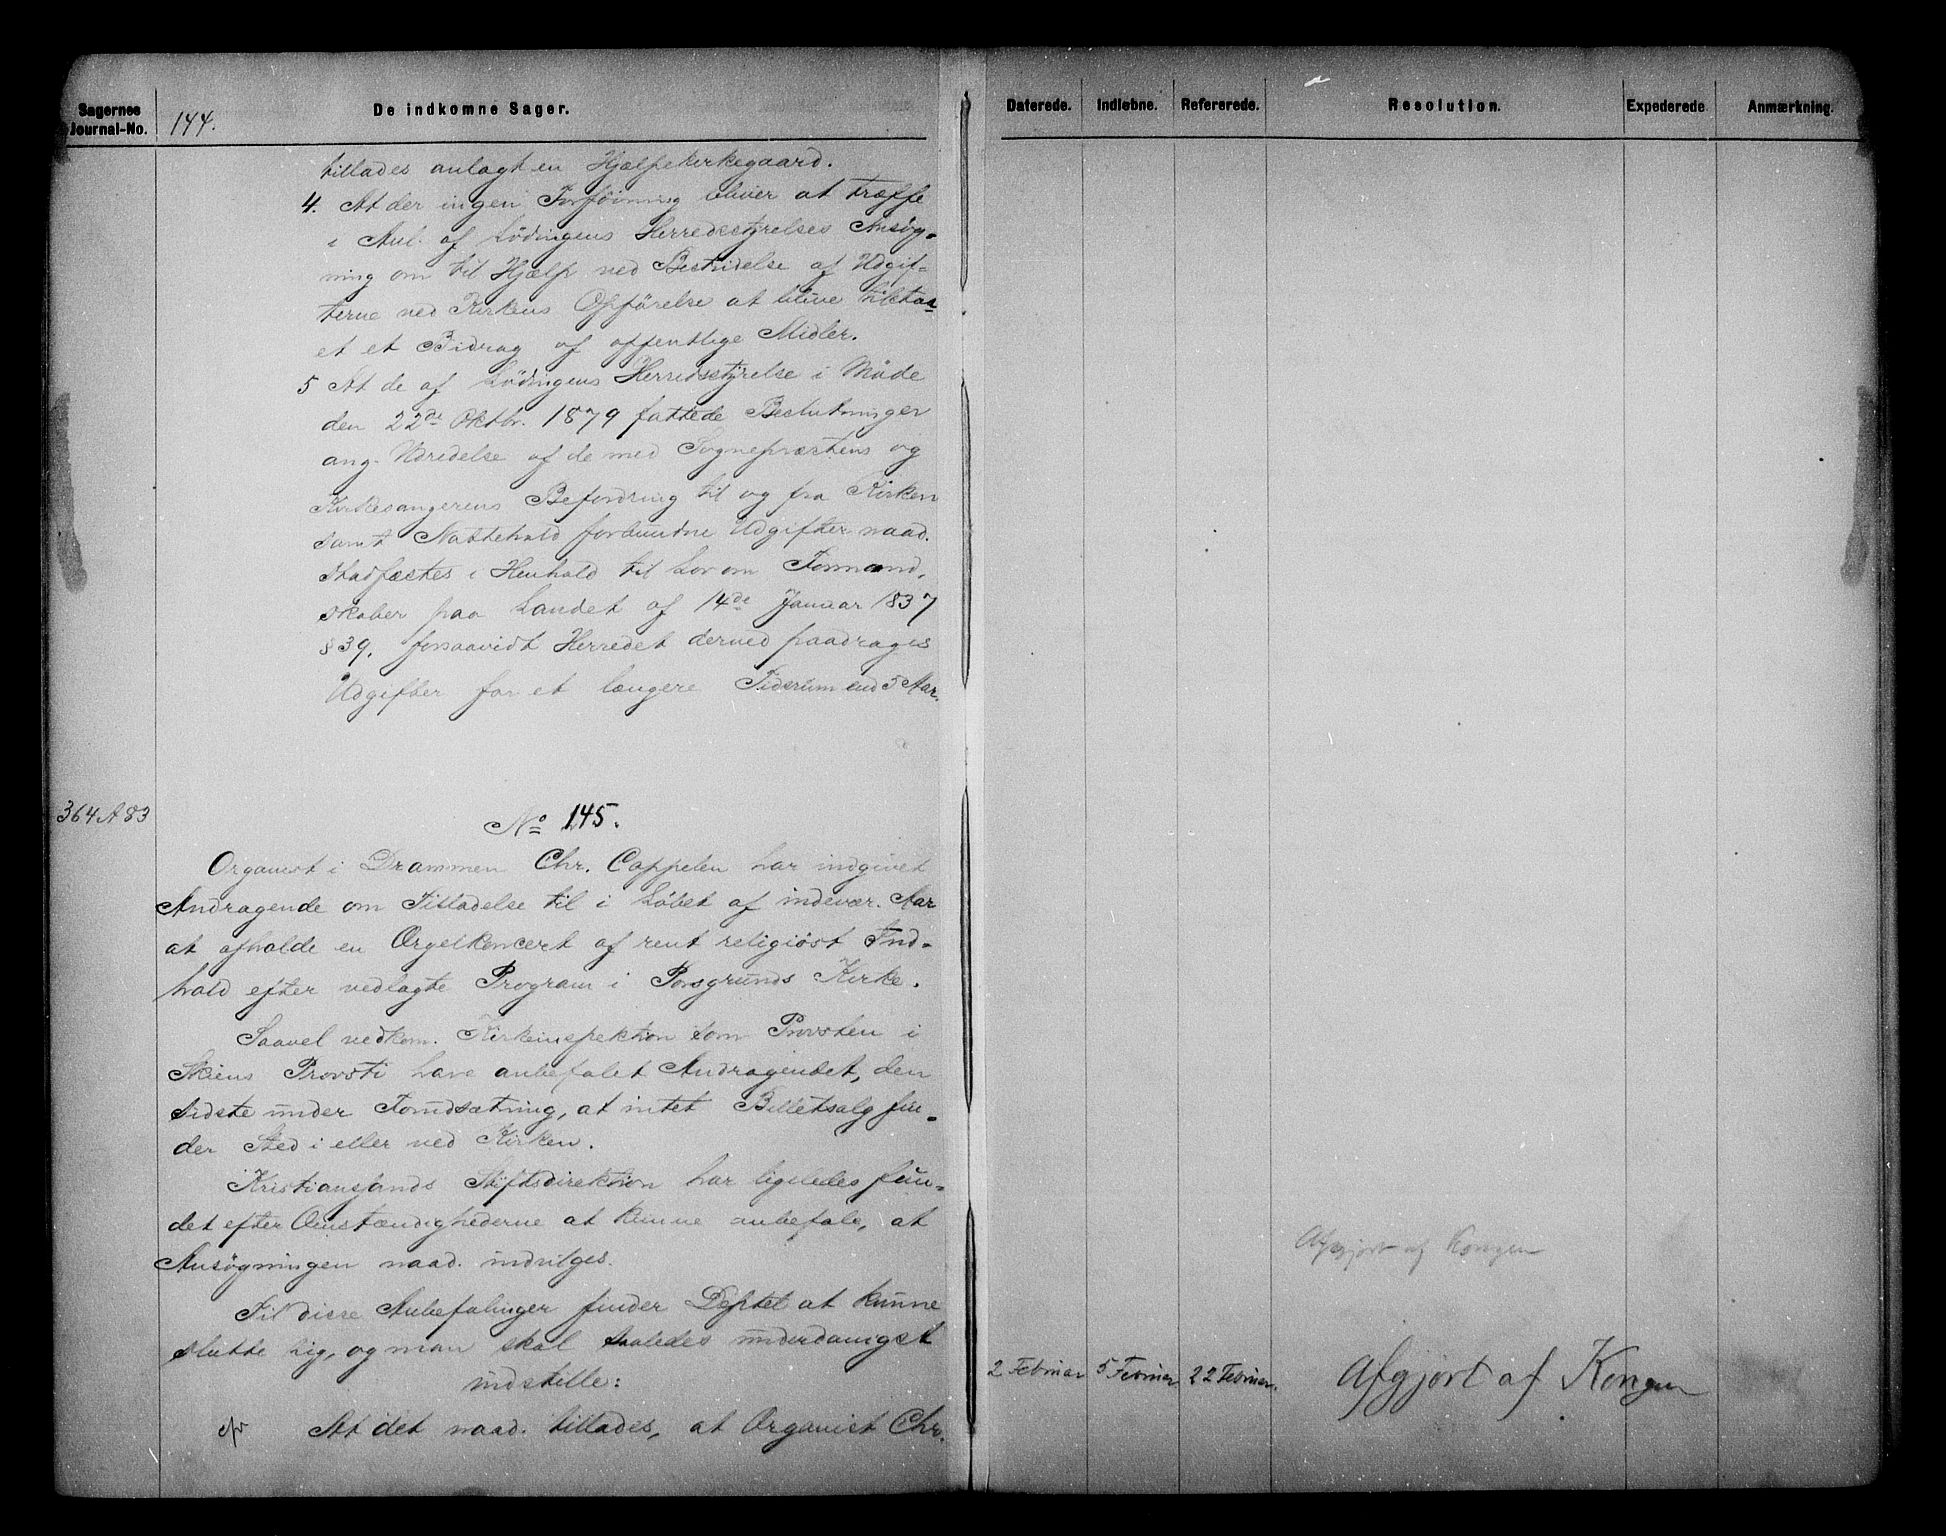 Sagernes Journal-No.
144.
De indkomne Sager.
Daterede.
Indløbne.
Refererede.
Resolution.
Expederede
Anmærkning.
tillades anlagt en Hjælpekirkegaard.
4. At der ingen Forføining bliver at træffe
i Anl. af Lødingens Herredsstyrelses Ansøg-
ning om til Hjælp ved Bestridelse af Udgif-
terne ved Kirkens Opførelse at blive tilstaa-
et et Bidrag af offentlige Midler.
5 At de af Lødingens Herredsstyrelse i Møde
den 22de Oktbr. 1879 fattede Beslutninger
ang. Udredelse af de med Sognepræstens og
Kirkesangerens Befordring til og fra Kirken
samt Nattehold forbundne Udgifter naad.
stadfæstes i Henhold til Lov om Formand,
skaber paa Landet af 14de Januar 1837
§ 39, forsaavidt Herredet derved paadrages
Udgifter for et længere Tidsrum end 5 Aar.
364 A 83
No 145.
Organist i Drammen Chr. Cappelen har indgivet
Andragende om Tilladelse til i Løbet af indevær. Aar
at afholde en Orgelkoncert af rent religiøst Ind-
hold efter vedlagte Program i Porsgrunds Kirke.
Saavel vedkom. Kirkeinspektion som Provsten i
Skiens Provsti have anbefalet Andragendet, den
sidste under Forudsætning, at intet Billetsalg fin-
der Sted i eller ved Kirken.
Kristiansands Stiftsdirektion har ligeledes fun-
det efter Omstændighederne at kunne anbefale, at
Ansøgningen naad. indvilges.
Til disse Anbefalinger finder Deptet at kunne
slutte sig, og man skal saaledes underdanigst
indstille:
At det naad. tillades, at Organist Chr.
Afgjort af Kongen
2 Februar
5 Februar
22 Februar.
Afgjort af Kongen